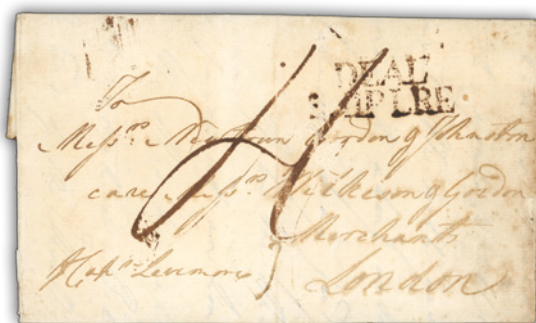 DEAL
SHIP LRE
To
Mess.rs Newton Gordon & Johnston
care Mess.rs Wilkeson & Gordon
Merchants
London
4